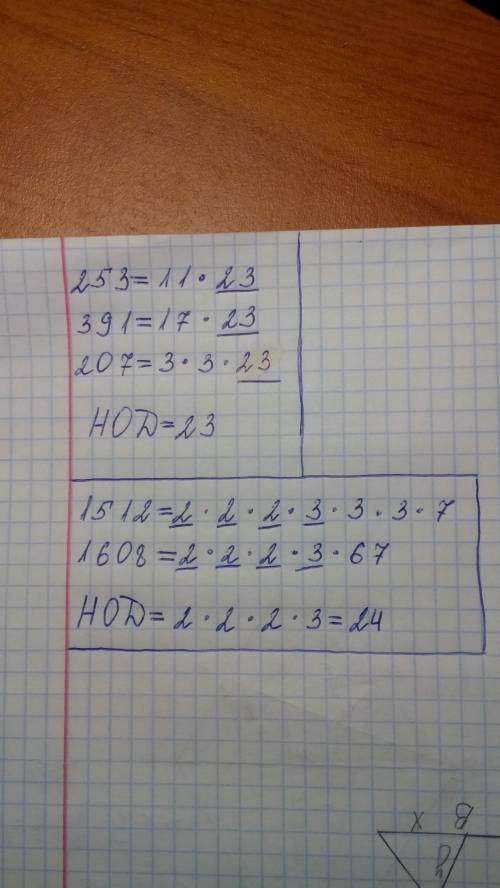 253=11·23
391=17·23
207=3·3·23
НОД=23
1512=2·2·2·3·3·3·7
1608=2·2·2·3·67
НОД=2·2·2·3=24
х В